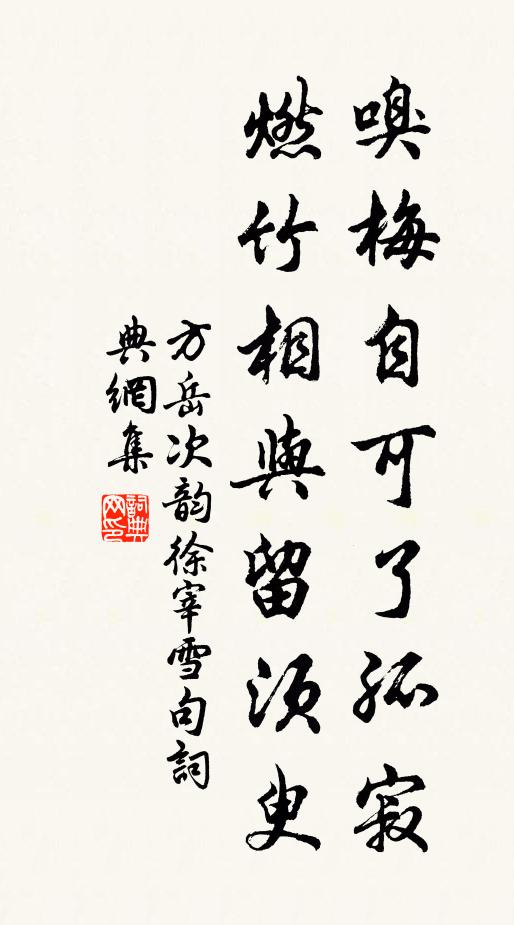 嗅梅自可了孤寂
燃竹相與留須臾
方岳次韵徐宰雪句詞
典網集
詞典
网印